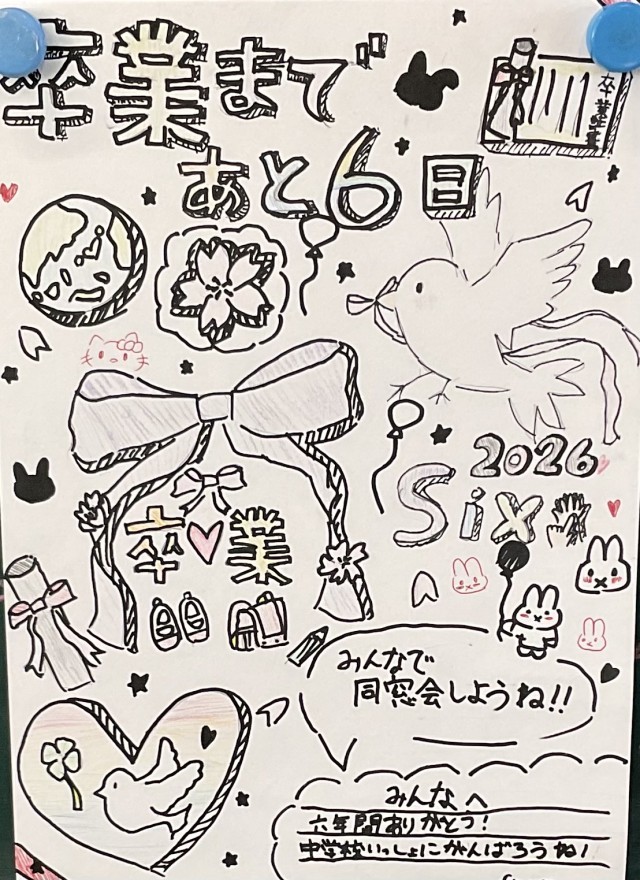 卒業まで
あと6日
卒業証書
2026
Six
卒業
みんなで
同窓会しようね!!
みんなへ
六年間ありがとう!
中学校いっしょにがんばろうね!